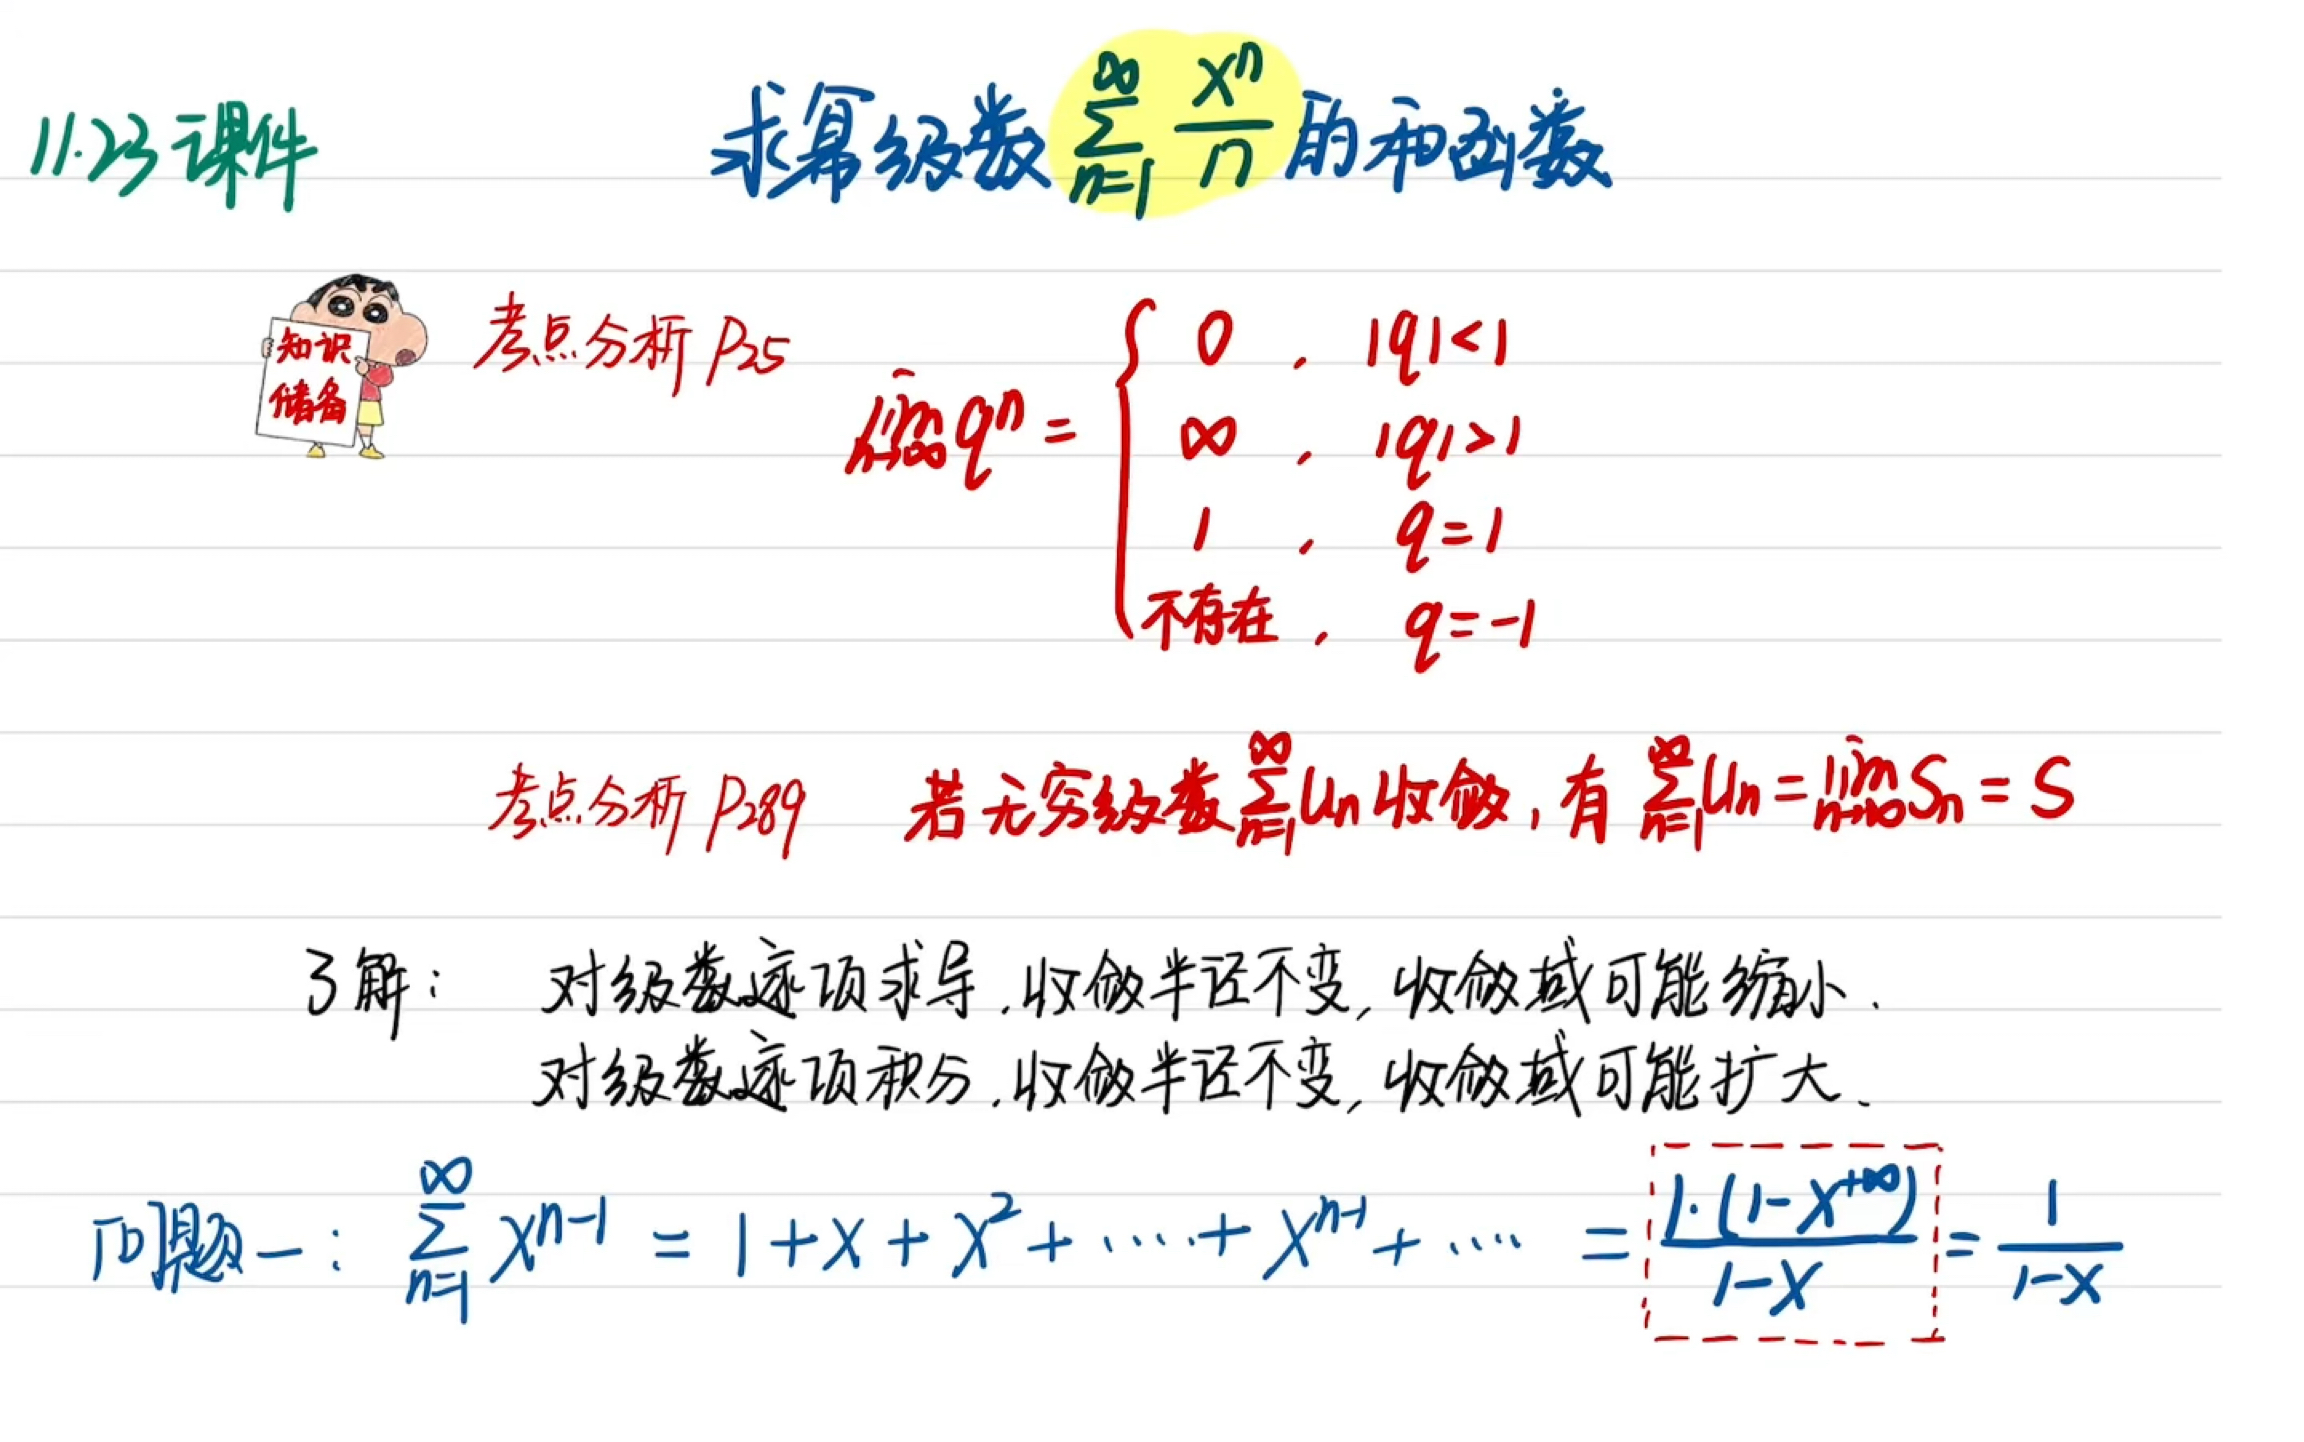 11.23课件
求幂级数 ∑_{n=1}^{∞} x^n/n 的和函数
知识
储备
考点分析 P25
lim_{n→∞} q^n = { 0 , |q|<1
∞ , |q|>1
1 , q=1
不存在 , q=-1
考点分析 P289 若无穷级数 ∑_{n=1}^{∞} Un 收敛, 有 ∑_{n=1}^{∞} Un = lim_{n→∞} Sn = S
了解: 对级数逐项求导, 收敛半径不变, 收敛域可能缩小.
对级数逐项积分, 收敛半径不变, 收敛域可能扩大.
问题一: ∑_{n=1}^{∞} x^{n-1} = 1+x+x^2+…+x^{n-1}+… = 1·(1-x^{+∞})/(1-x) = 1/(1-x)